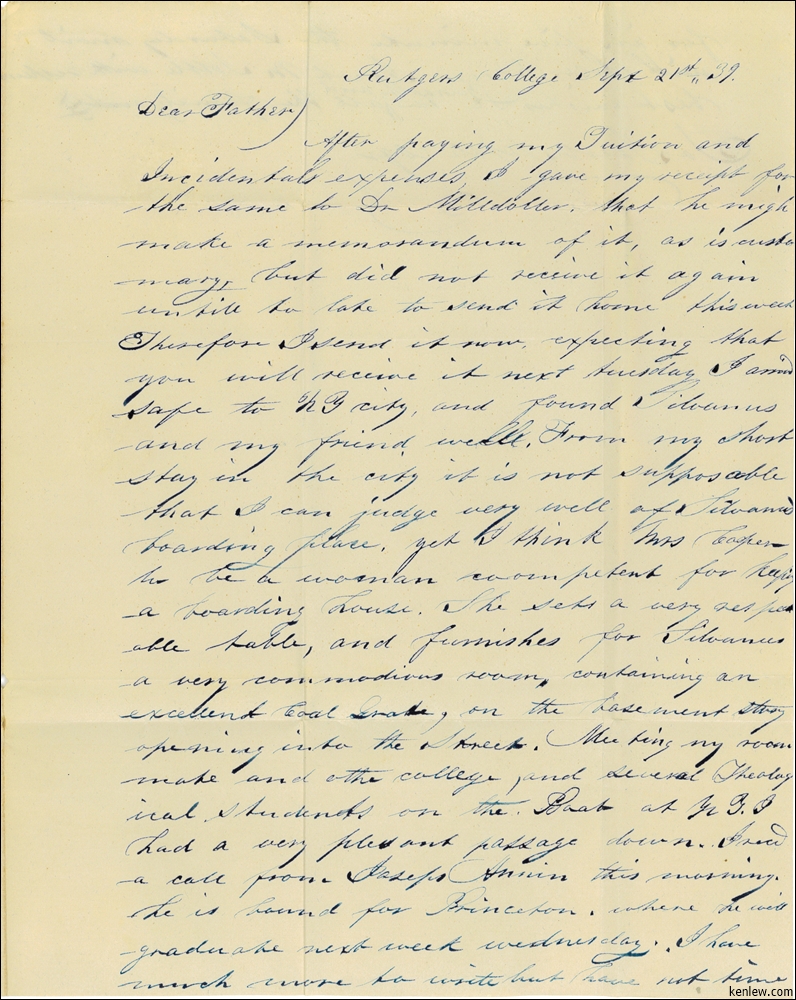 Rutgers College Sept 21st,, 39.
Dear Father)
After paying my Tuition and
Incidentals expenses, I gave my receipt for
the same to Dr Milldoller. that he migh
make a memorandum of it, as is custo
mary, but did not receive it again
untill to late to send it home this week
Therefore I send it now, expecting that
you will receive it next tuesday I arrivd
safe to NY city, and found Silvanus
and my friend well. From my short
stay in the city it is not supposable
that I can judge very well of Silvanus
boarding place, yet I think Mrs Cooper
to be a woman coompetent for keeping
a boarding house. She sets a very respect
able table, and furnishes for Silvanus
a very commodious room, containing an
excellent Coal Grate, on the basement story
opening into the Street. Meeting my room
mate and othe college, and several Theolog
ical students on the Boat at N.Y. I
had a very plesant passage down. I recd
a call from Joseph Annin this morning.
he is bound for Princeton. where he will
graduate next week wednesday. I have
much more to write but have not time
kenlew.com